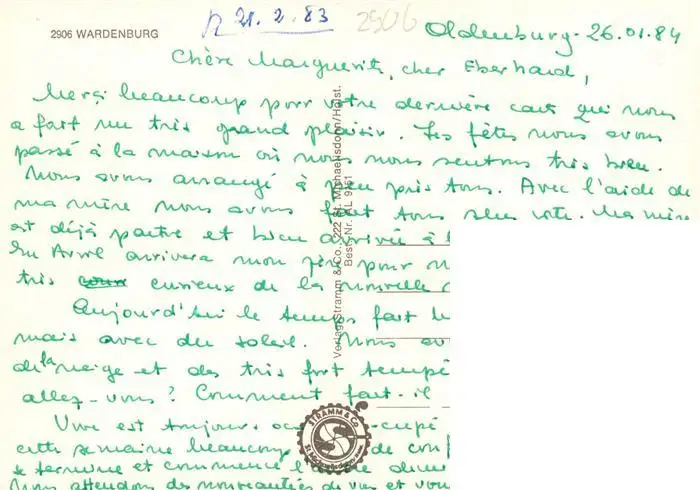 2906 WARDENBURG
R 21.2.83
2906
Oldenburg - 26.01.84
Chère Marguerite, cher Eberhard,
Merçi beaucoup pour votre dernière carte qui nous
a fait un très grand plaisir. Les fêtes nous avons
passé à la maison où nous nous sentons très bien.
Nous avons arrangé à peu près tous. Avec l'aide de
ma mère nous avons fait tous plus vite. Ma mère
est déjà partre et bien arrivée à
En Avril arrivera mon père pour
très curieux de la nouvelle
Aujourd'hui le temps fait
mais avec du soleil. Nous
de la neige et des très fort tempê
allez-vous? Comment fait-il
Uwe est toujours occupé
cette semaine beaucoup de
se termine et commence
Nous attendons des nouveautés de vous et vou
Verlag Stramm & Co., 222 St. Michaelisdonn/Holst.
Best.-Nr. ML 9161
STRAMM & CO.